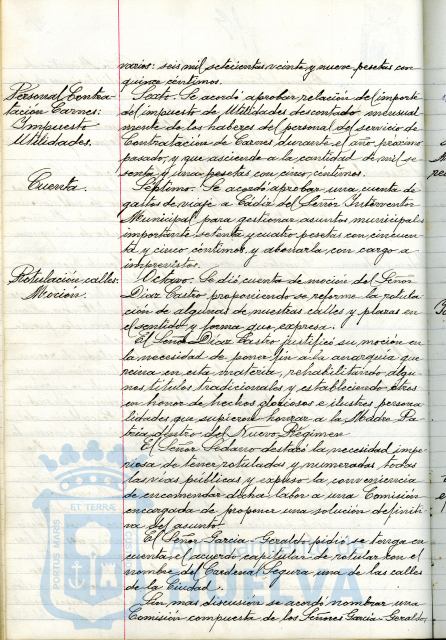 varios: seis mil setecientas veinte y nueve pesetas con
quince céntimos.
Personal Contra-
tación Carnes:
Impuesto
Utilidades.
Sexto. Se acordó aprobar relación del importe
del impuesto de Utilidades descontado mensual
mente de los haberes del personal de servicio de
Contratación de Carnes durante el año próximo
pasado, y que asciende a la cantidad de mil se
senta y una pesetas con cinco céntimos.
Cuenta.
Séptimo. Se acordó aprobar una cuenta de
gastos de viaje a Cádiz del Señor Interventor
Municipal para gestionar asuntos municipales
importante setenta y cuatro pesetas con cincuen
ta y cinco céntimos, y abonarla con cargo a
imprevistos.
Rotulación calles.
Moción.
Octavo. Se dió cuenta de moción del Señor
Díaz Castro proponiendo se reforme la rotula
ción de algunas de nuestras calles y plazas en
el sentido y forma que expresa.
El Señor Díaz Castro justificó su moción en
la necesidad de poner fin a la anarquía que
reina en esta materia, rehabilitando algu
nos títulos tradicionales y estableciendo otros
en honor de hechos gloriosos e ilustres persona
lidades que supieron honrar a la Madre Pa
tria dentro del Nuevo Régimen.
El Señor Sedano destacó la necesidad impe
riosa de tener rotuladas y numeradas todas
las vías públicas y expuso la conveniencia
de encomendar dicha labor a una Comisión
encargada de proponer una solución definiti
va del asunto.
El Señor García-Geraldo pidió se tenga en
cuenta el acuerdo capitular de rotular con el
nombre del Cardenal Segura una de las calles
de la Ciudad.
Sin mas discusión se acordó nombrar una
Comisión compuesta de los Señores García-Geraldo,
PORTUS MARIS
ET TERRAE
HUELVA